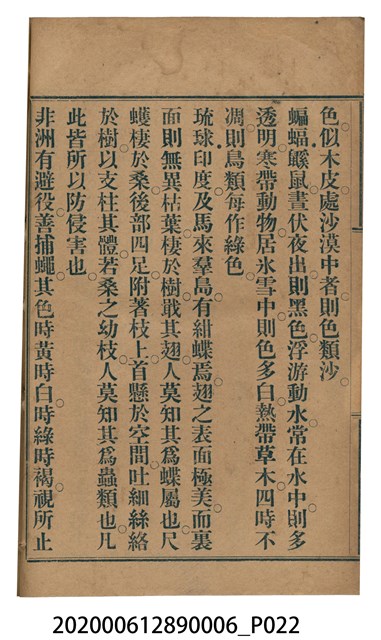 色似木皮處沙漠中者則色類沙
蝙蝠鼷鼠晝伏夜出則黑色浮游動水常在水中則多
透明寒帶動物居氷雪中則色多白熱帶草木四時不
凋則鳥類每作綠色
琉球印度及馬來羣島有紺蝶焉翅之表面極美而裏
面則無異枯葉棲於樹戢其翅人莫知其爲蝶屬也尺
蠖棲於桑後部四足附著枝上首懸於空間吐細絲絡
於樹以支柱其體若桑之幼枝人莫知其爲蟲類也凡
此皆所以防侵害也
非洲有避役善捕蠅其色時黃時白時綠時褐視所止
202000612890006_P022